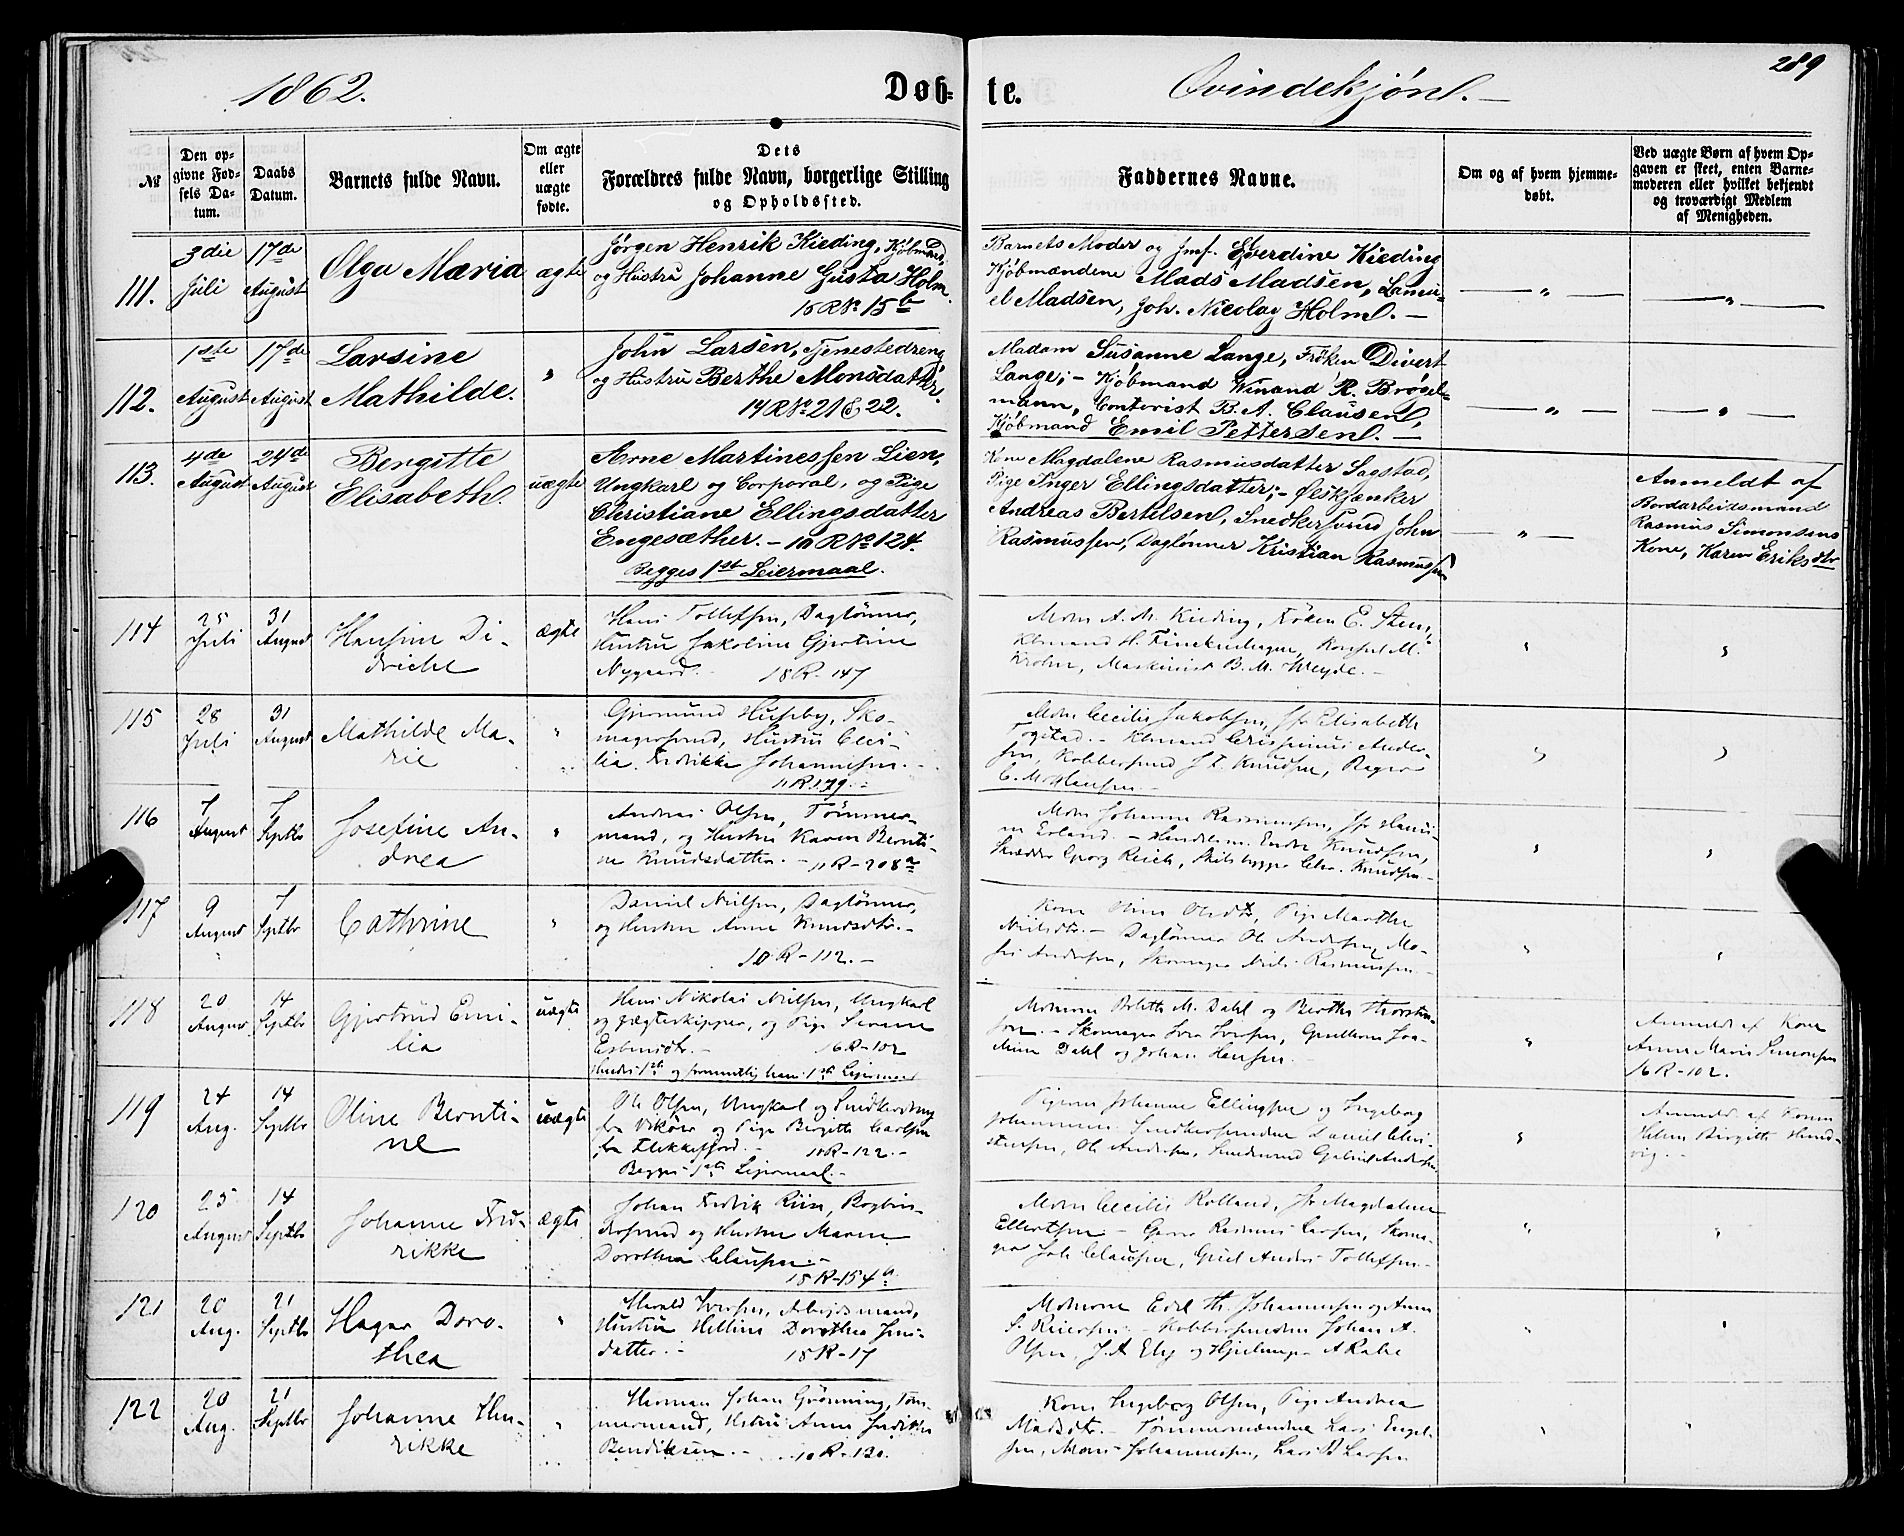 289
1862.
Døb-
te.
Qvindekjøn.
№
Den op-
givne Fød-
sels Da-
tum.
Daabs
Datum.
Barnets fulde Navn.
Om ægte
eller
uægte
fødte.
Dets
Forældres fulde Navn, borgerlige Stilling
og Opholdssted.
Faddernes Navne.
Om og af hvem hjemme-
døbt.
Ved uægte Børn af hvem Op-
gaven er skeet, enten Barne-
moderen eller hvilket bekjendt
og troværdigt Medlem
af Menigheden.
111.
3die
Juli
17de
August
Olga Maria
ægte
Jørgen Henrik Kieding, Kjøbmand,
og Hustru Johanne Gusta Holm
15 R № 15b
Barnets Moder og Jmf. Everdine Kieding
Kjøbmændene Mads Madsen, Lamu-
el Madsen, Joh. Nicolay Holm. —
— " —
— " —
112.
1ste
August
17de
August
Larsine
Mathilde.
"
John Larsen, Tjenestedreng
og Hustru Berthe Monsdatter.
14 R № 21 & 22.
Madam Susanne Lange, Frøken Divert
Lange; — Kjøbmand Winand R. Brøgel-
mann, Contorist B. A. Clausen,
Kjøbmand Emil Pettersen. —
— " —
— " —
113.
4de
August
24de
August
Bergitte
Elisabeth.
uægte
Arne Martinessen Lien,
Ungkarl og Corporal, og Pige
Christiane Ellingsdatter
Engesæther. — 10 R № 124.
Begges 1st Leiermaal.
Kone Magdalene Rasmusdatter Sagstad,
Pige Inger Ellingsdatter; — Ølskjænker
Andreas Bertelsen, Snedkersvend John
Rasmussen, Dagløнner Kristian Rasmussen
— " —
Anmeldt af
Bordarbeidsmand
Rasmus Simonsens
Kone, Karen Eriksdtr
114
25
Juli
31
August
Hansine Di-
driche
ægte
Hans Tollefsen, Dagløнner,
Hustru Jakobine Gjertine
Nygaard. — 18 R — 147
Mdm A. M. Kieding, Frøken E. Steen,
Kbmand H. Finckenhagen, Konsul M.
Krohn, Maskinist B. M. Weyde. —
"
"
115
28
Juli
31
August
Mathilde Ma-
rie
"
Gjermund Huseby, Sko-
magersvend, Hustru Ceci-
lia Fredrikke Johannesen. —
11 R 179. —
Mdm Cecilie Jakobsen, Jfr Elisabeth
Fogstad. — Kbmand Crispinus Ander-
sen, Kobbersmed J. F. Knudsen, Bager
"
"
116
7
August
7
Septbr
Josefine An-
drea
"
Andreas Olsen, Tømmer-
mand, og Hustru Karen Bernti-
ne Knudsdatter. — 11 R — 208a
Mdm Johanne Rasmussen, Jfr Hansi-
ne Erland. — Handlsm. Endre Knudsen,
Skrædder Georg Reich, Skibsbygger Chr. Knudsen —
"
"
117
9
August
7
Septbr
Cathrine
"
Daniel Nielsen, Dagløнner,
og Hustru Anne Knudsdtr. —
10 R — 112. —
Kone Oline Olsdtr, Pige Marthe
Nielsdtr. — Dagløнner Ole Andersen, Mo-
ses Andersen, Skomager Niels Rasmussen —
"
"
118
20
August
14
Septbr
Gjertrud Emi-
lia
uægte
Hans Nikolai Nielsen, Ungkarl
og Jægteskipper, og Pige Severine
16 R — 102
Hendes 1ste og formentlig hans 1ste Leiermaal
Mdmme Bolette M. Dahl og Berthe Thorsten-
sen. — Skomager Iver Iversen, Guldsm Joa-
chim Dahl og Johan Hansen.
"
Anmeldt af Kone
Anne Marie Simonsen
16 R — 102.
119
24
Aug.
14
Septbr
Oline Bernti-
ne
uægte
Ole Olsen, Ungkarl og Snedkerdreng
fra Vikør og Pige Birgitte Carlsen
fra Flekkefjord. — 10 R — 122. —
Begges 1ste Leiermaal. —
Pigerne Johanne Ellingsen og Ingeborg
Johannesen. Snedkersvendene Daniel Chri-
stensen, Ole Andersen, Smedsvend Gabriel Andersen
"
Anmeldt af Konen
Helene Birgitte Hund-
vig. —
120
25
August
14
Septbr
Johanne Fre-
rikke
ægte
Johan Fredrik Riise, Bogbin-
dersvend og Hustru Maren
Dorothea Clausen. —
18 R — 154b
Mdm Cecilie Rolland, Jfr Magdalene
Ellertsen. — Garver Rasmus Larsen, Skoma-
ger Joh. Clausen, Guld Anders Tollefsen —
"
"
121
20
Aug.
21
Septbr
Hager Doro-
thea
"
Harald Iversen, Arbeidsmand,
Hustru Helline Dorothea Jens-
datter. — 18 R — 17
Mdmme Edel Th. Johannesen og Anne
S. Reiersen. — Kobbersmedene Johan A.
Olsen, J. A. Eby og Hjulmager A Rabe
"
"
122
20
Aug.
21
Septbr
Johanne Hen-
rikke
"
Herman Johan Grønning, Tøm-
mermand, Hustru Anne Fredrikke
Bendiksen. — 10 R — 130.
Kone Ingeborg Olsen, Pige Andrea
Madsdtr. — Tømmermændene Lars Engel-
sen, Mons Johannesen, Lars B Larsen
"
"